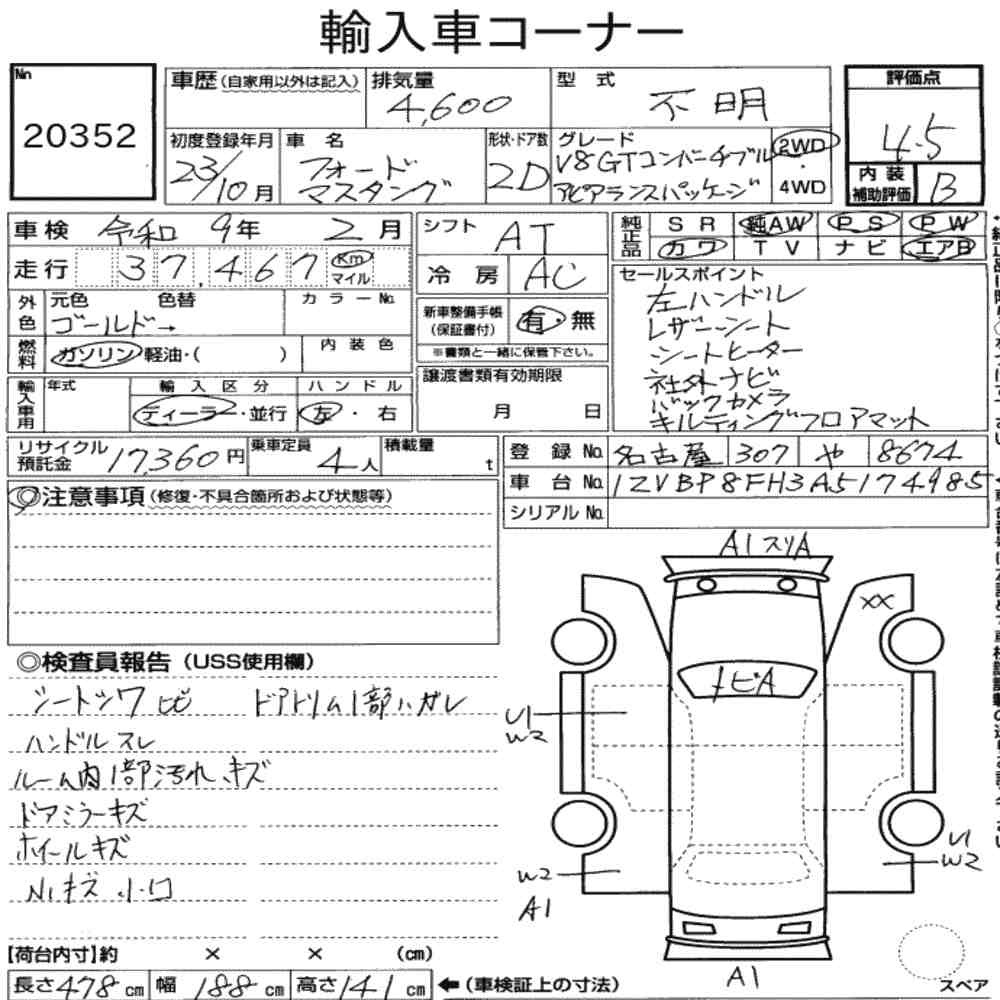 輸入車コーナー
No
20352
車歴(自家用以外は記入)
排気量
4,600
型式
不明
評価点
4.5
内装
補助評価
B
初度登録年月
23/10月
車名
フォード
マスタング
形状・ドア数
2D
グレード
V8GTコンバーチブル
アピアランスパッケージ
2WD
・
4WD
車検 令和 9年 2月
走行 37,467 Km
マイル
シフト AT
冷房 AC
純正品
SR 純AW PS PW
カワ TV ナビ エアB
外色
元色 色替
ゴールド→
カラーNo.
燃料
ガソリン・軽油・( )
内装色
新車整備手帳
(保証書付)
有・無
※書類と一緒に保管下さい。
セールスポイント
左ハンドル
レザーシート
シートヒーター
社外ナビ
バックカメラ
キルティングフロアマット
輸入車用
年式
輸入区分
ディーラー・並行
ハンドル
左・右
譲渡書類有効期限
月 日
リサイクル
預託金
17,360円
乗車定員
4人
積載量
t
登録No. 名古屋 307 や 8674
車台No. 1ZVBP8FH3A5174985
シリアルNo.
◎注意事項(修復・不具合箇所および状態等)
◎検査員報告(USS使用欄)
シートシワ ヒビ ドアトリム1部ハガレ
ハンドルスレ
ルーム内1部汚れ、キズ
ドアミラーキズ
ホイールキズ
Nレキズ 小凹
A1スリA
XX
トビA
U1
W2
U1
W2
W2
A1
A1
スペア
【荷台内寸】約 × × (cm)
長さ478cm 幅188cm 高さ141cm ←(車検証上の寸法)